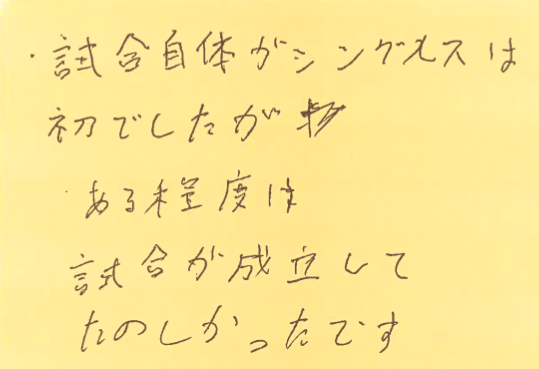 ・試合自体がシングルスは
初でしたが
・ある程度は
試合が成立して
たのしかったです